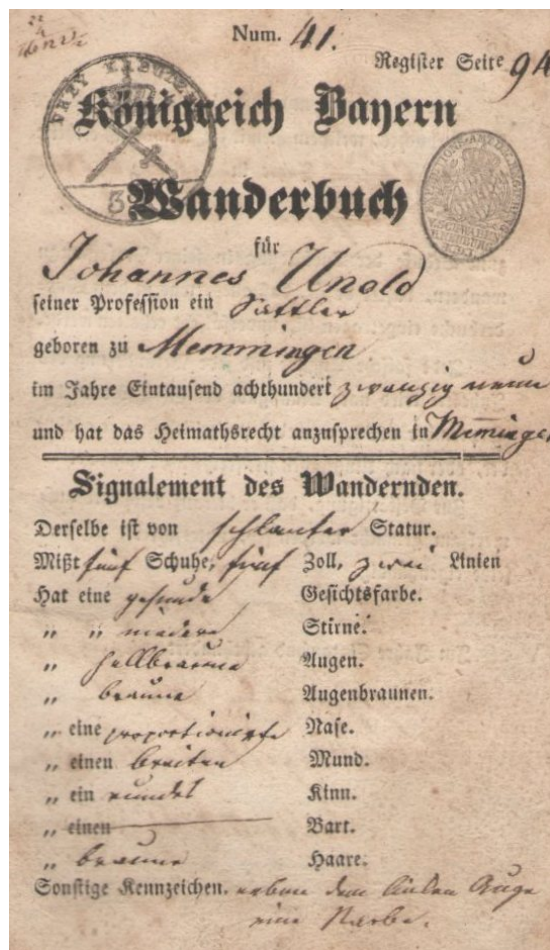 Num. 41.
Register Seite 94
Königreich Bayern
Wanderbuch
für
Johannes Unold
seiner Profession ein Sattler
geboren zu Memmingen
im Jahre Eintausend achthundert zwanzig neun
und hat das Heimathsrecht anzusprechen in Memingen
Signalement des Wandernden.
Derselbe ist von schlanker Statur.
Mißt fünf Schuhe, fünf Zoll, zwei Linien
Hat eine gesunde Gesichtsfarbe.
" " niedere Stirne.
" hellbraune Augen.
" braune Augenbraunen.
" eine proportionirte Nase.
" einen breiten Mund.
" ein rundes Kinn.
" einen Bart.
" braune Haare.
Sonstige Kennzeichen. neben dem linken Auge
eine Narbe.